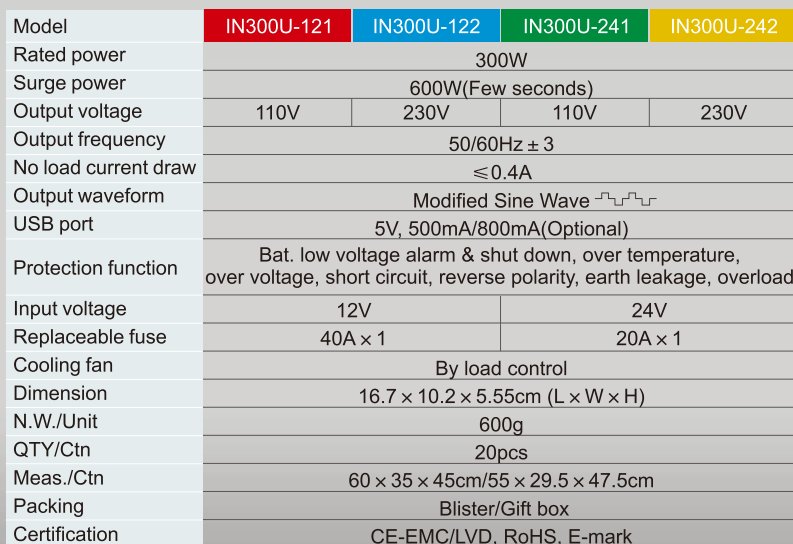 Model IN300U-121 IN300U-122 IN300U-241 IN300U-242
Rated power 300W
Surge power 600W(Few seconds)
Output voltage 110V 230V 110V 230V
Output frequency 50/60Hz ± 3
No load current draw ≤0.4A
Output waveform Modified Sine Wave
USB port 5V, 500mA/800mA(Optional)
Protection function Bat. low voltage alarm & shut down, over temperature,
over voltage, short circuit, reverse polarity, earth leakage, overload
Input voltage 12V 24V
Replaceable fuse 40A × 1 20A × 1
Cooling fan By load control
Dimension 16.7 × 10.2 × 5.55cm (L × W × H)
N.W./Unit 600g
QTY/Ctn 20pcs
Meas./Ctn 60 × 35 × 45cm/55 × 29.5 × 47.5cm
Packing Blister/Gift box
Certification CE-EMC/LVD, RoHS, E-mark